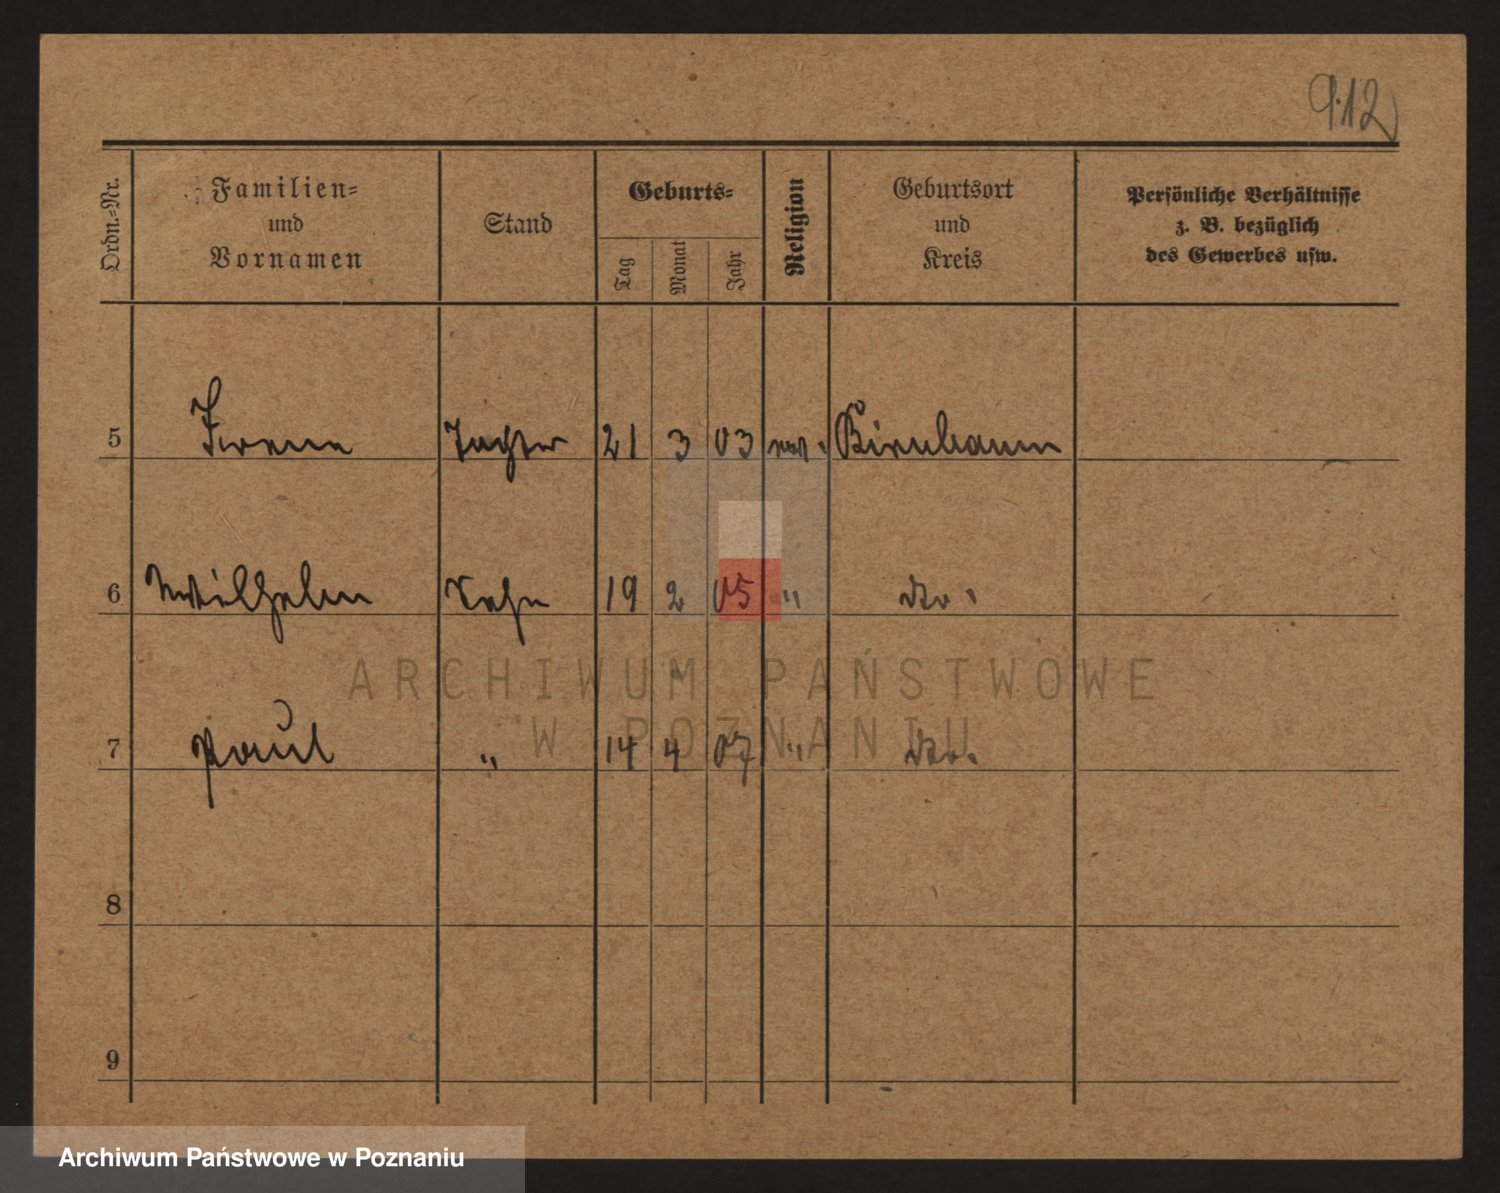 912
Ordn.=Nr.
Familien=
und
Vornamen
Stand
Geburts=
Tag
Monat
Jahr
Religion
Geburtsort
und
Kreis
Persönliche Verhältnisse
z. B. bezüglich
des Gewerbes usw.
5 Irene Tochter 21 3 03 Birnbaum
6 Wilhelm Sohn 19 2 05 " do.
7 Paul " 14 4 07 " do.
8
9
ARCHIWUM PAŃSTWOWE
W POZNANIU
Archiwum Państwowe w Poznaniu